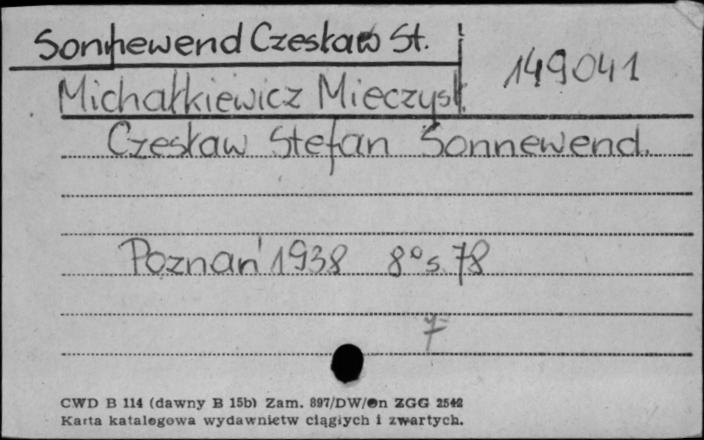 Sonnewend Czesław St.
149041
Michałkiewicz Mieczysł.
Czesław Stefan Sonnewend.
Poznań 1938 8° s. 78
7
CWD B 114 (dawny B 15b) Zam. 897/DW/en ZGG 2542
Karta katalogowa wydawnictw ciągłych i zwartych.